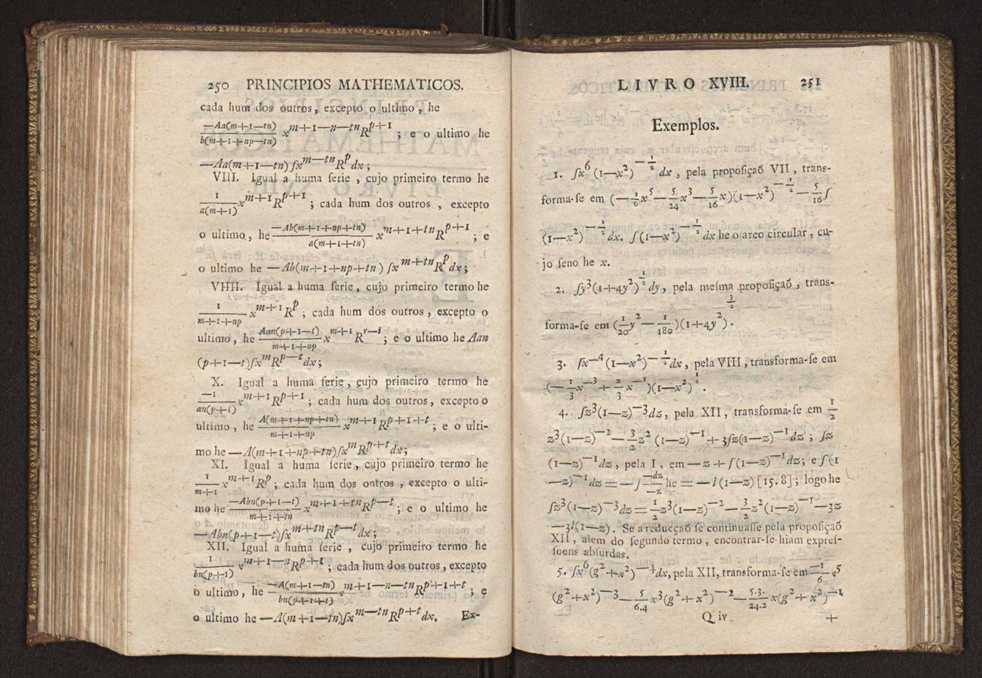 250 PRINCIPIOS MATHEMATICOS.
cada hum dos outros, excepto o ultimo, he
—Aa(m+1—tn)/b(m+1+np—tn) x^{m+1—n—tn}R^{p+1}; e o ultimo he
—Aa(m+1—tn)ſx^{m—tn}R^p dx;
VIII. Igual a huma ſerie, cujo primeiro termo he
1/a(m+1) x^{m+1}R^{p+1}; cada hum dos outros, excepto
o ultimo, he —Ab(m+1+np+tn)/a(m+1+tn) x^{m+1+tn}R^{p+1}; e
o ultimo he —Ab(m+1+np+tn)ſx^{m+tn}R^p dx;
VIIII. Igual a huma ſerie, cujo primeiro termo he
1/m+1+np x^{m+1}R^p; cada hum dos outros, excepto o
ultimo, he Aan(p+1—t)/m+1+np x^{m+1}R^{r—t}; e o ultimo he Aan
(p+1—t)ſx^m R^{p—t}dx;
X. Igual a huma ſerie, cujo primeiro termo he
—1/an(p+1) x^{m+1}R^{p+1}; cada hum dos outros, excepto o
ultimo, he A(m+1+np+tn)/m+1+np x^{m+1}R^{p+1+t}; e o ulti-
mo he —A(m+1+np+tn)ſx^m R^{p+t}dx;
XI. Igual a huma ſerie, cujo primeiro he
1/m+1 x^{m+1}R^p; cada hum dos outros, excepto o ulti-
mo he —Abn(p+1—t)/m+1+tn x^{m+1+tn}R^{p—t}; e o ultimo he
—Abn(p+1—t)ſx^{m+tn}R^{p—t}dx;
XII. Igual a huma ſerie, cujo primeiro termo he
1/bn(p+1) x^{m+1—n}R^{p+1}; cada hum dos outros, excepto
o ultimo, he —A(m+1—tn)/bn(p+1+t) x^{m+1—n—tn}R^{p+1+t}; e
o ultimo he —A(m+1—tn)ſx^{m—tn}R^{p+t}dx. Ex-
LIVRO XVIII. 251
Exemplos.
1. ſx^6(1—x^2)^{—1/2}dx, pela propoſiçaõ VII, trans-
forma-ſe em (—1/6 x^5—5/24 x^3—5/16 x)(1—x^2)^{—1/2}—5/16 ſ
(1—x^2)^{—1/2}dx. ſ(1—x^2)^{—1/2}dx he o arco circular, cu-
jo ſeno he x.
2. ſy^3(1+4y^2)^{1/2}dy, pela meſma propoſiçaõ, trans-
forma-ſe em (1/20 y^2—1/180)(1+4y^2)^{3/2}.
3. ſx^{—4}(1—x^2)^{—1/2}dx, pela VIII, transforma-ſe em
(—1/3 x^{—3}+2/3 x^{—1})(1—x^2)^{1/2}.
4. ſz^3(1—z)^{—3}dz, pela XII, transforma-ſe em 1/2
z^3(1—z)^{—2}—3/2 z^2(1—z)^{—1}+3ſz(1—z)^{—1}dz; ſz
(1—z)^{—1}dz, pela I, em —z+ſ(1—z)^{—1}dz; e ſ(1
—z)^{—1}dz=—ſ—dz/1—z he —l(1—z)[15.8]; lógo he
ſz^3(1—z)^{—3}dz=1/2 z^3(1—z)^{—2}—3/2 z^2(1—z)^{—1}—3z
—3l(1—z). Se a reducçaõ ſe continuaſſe pela propoſiçaõ
XII, alem do ſegundo termo, encontrar-ſe-hiam expreſ-
ſoens abſurdas.
5. ſx^6(g^2+x^2)^{—4}dx, pela XII, transforma-ſe em —1/6 x^5
(g^2+x^2)^{—3}—5/6.4 x^3(g^2+x^2)^{—2}—5.3./24.2 x(g^2+x^2)^{—1}
Q iv +